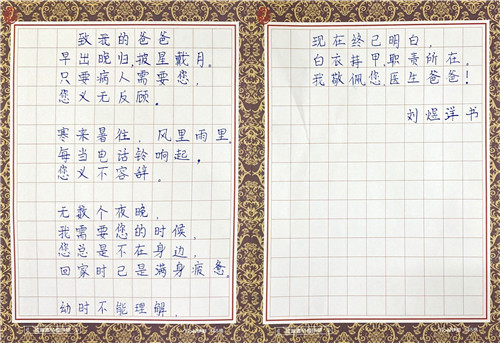 致我的爸爸
早出晚归披星戴月。
只要病人需要您，
您义无反顾。
寒来暑往，风里雨里。
每当电话铃响起，
您义不容辞。
无数个夜晚，
我需要您的时候，
您总是不在身边，
回家时已是满身疲惫。
幼时不能理解，
现在终已明白，
白衣拜甲，职责所在。
我敬佩您，医生爸爸！
刘煜洋书